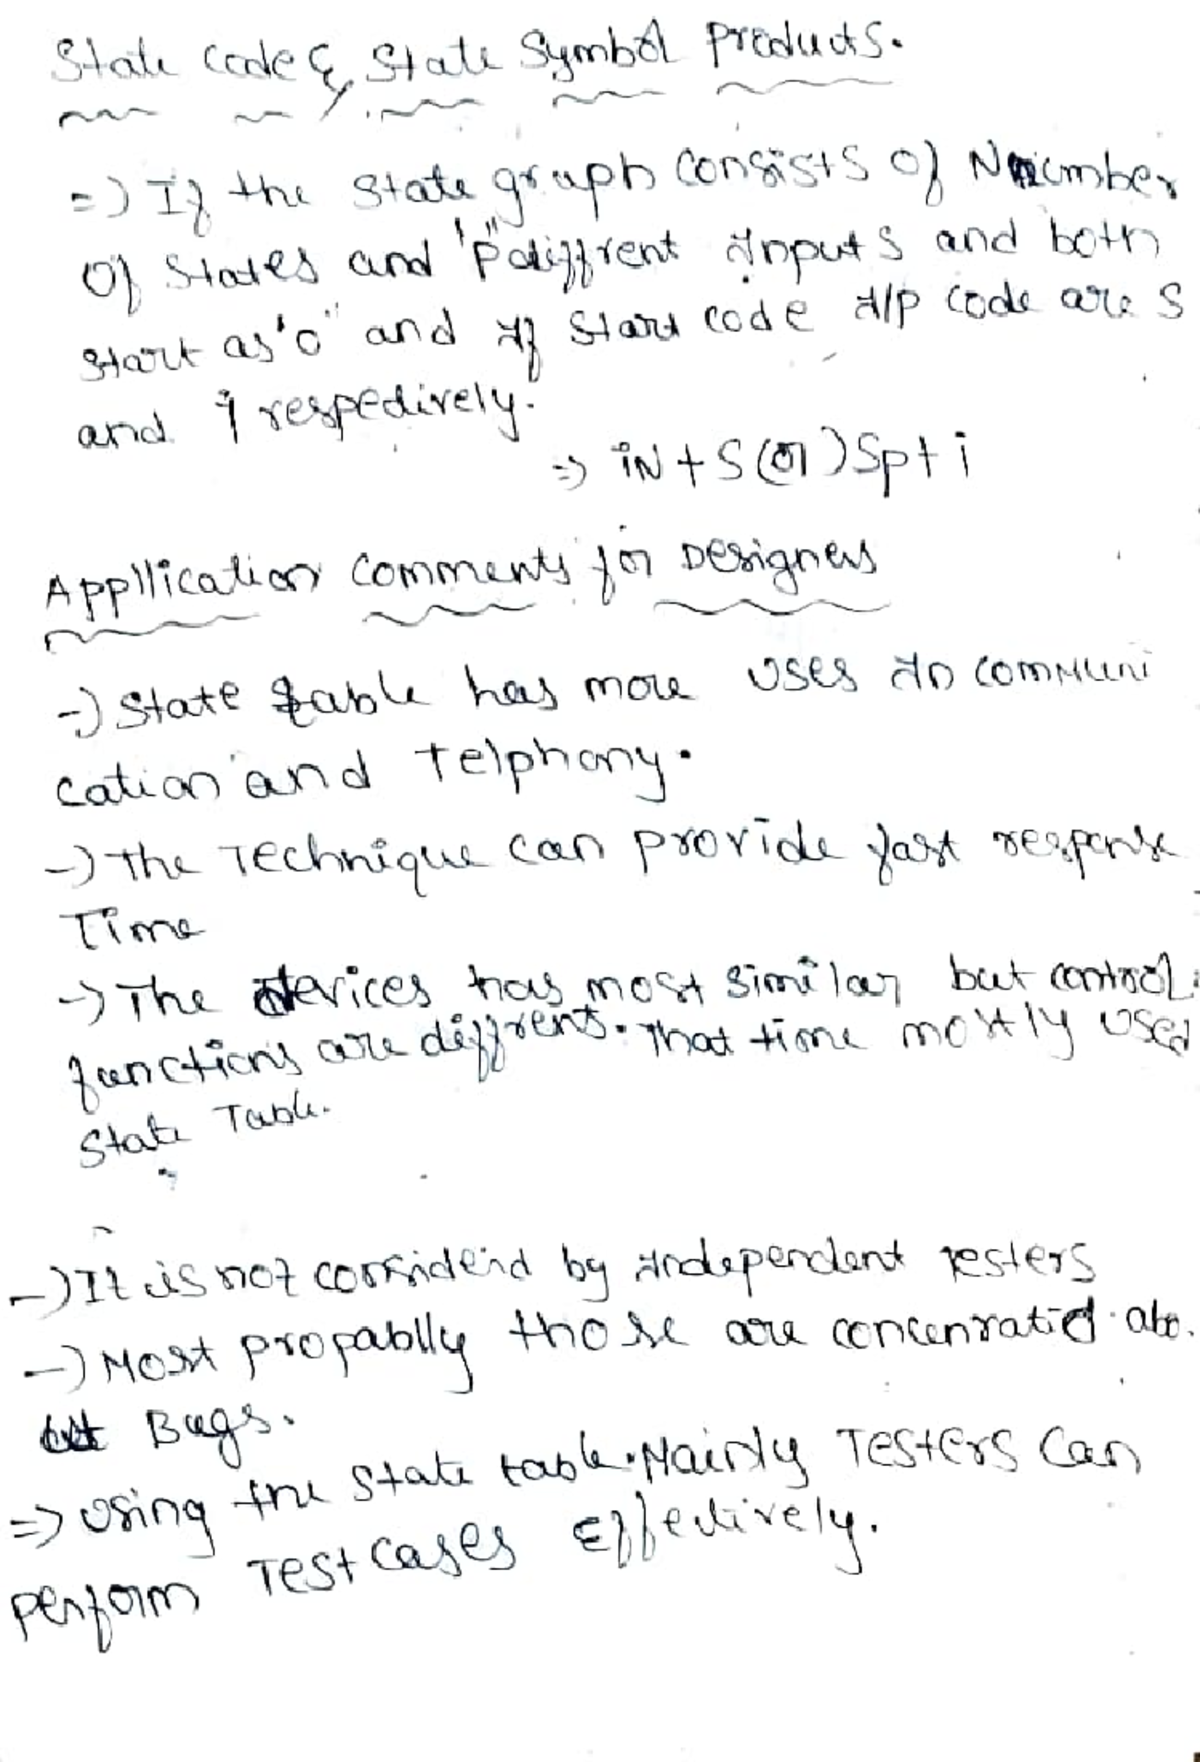 State code & State Symbol Products.
=) If the State graph Consists of Number
of States and "P" diffrent Inputs and both
start as 'o" and If Start code I/p code are S
and i respedively.
=) iN + S (or) Sp + i
Appllication Comments for Designers
-) State table has more uses In communi
cation and Telphony.
-) The Technique can provide fast response
Time
-) The devices has most similar but control
functions are diffrent. That time mostly used
State Table.
-) It is not considerd by Independent Testers
-) Most propablly those are concenratied abo
ut Bugs.
=) using the state table. Mainly Testers Can
perform Testcases Effectively.